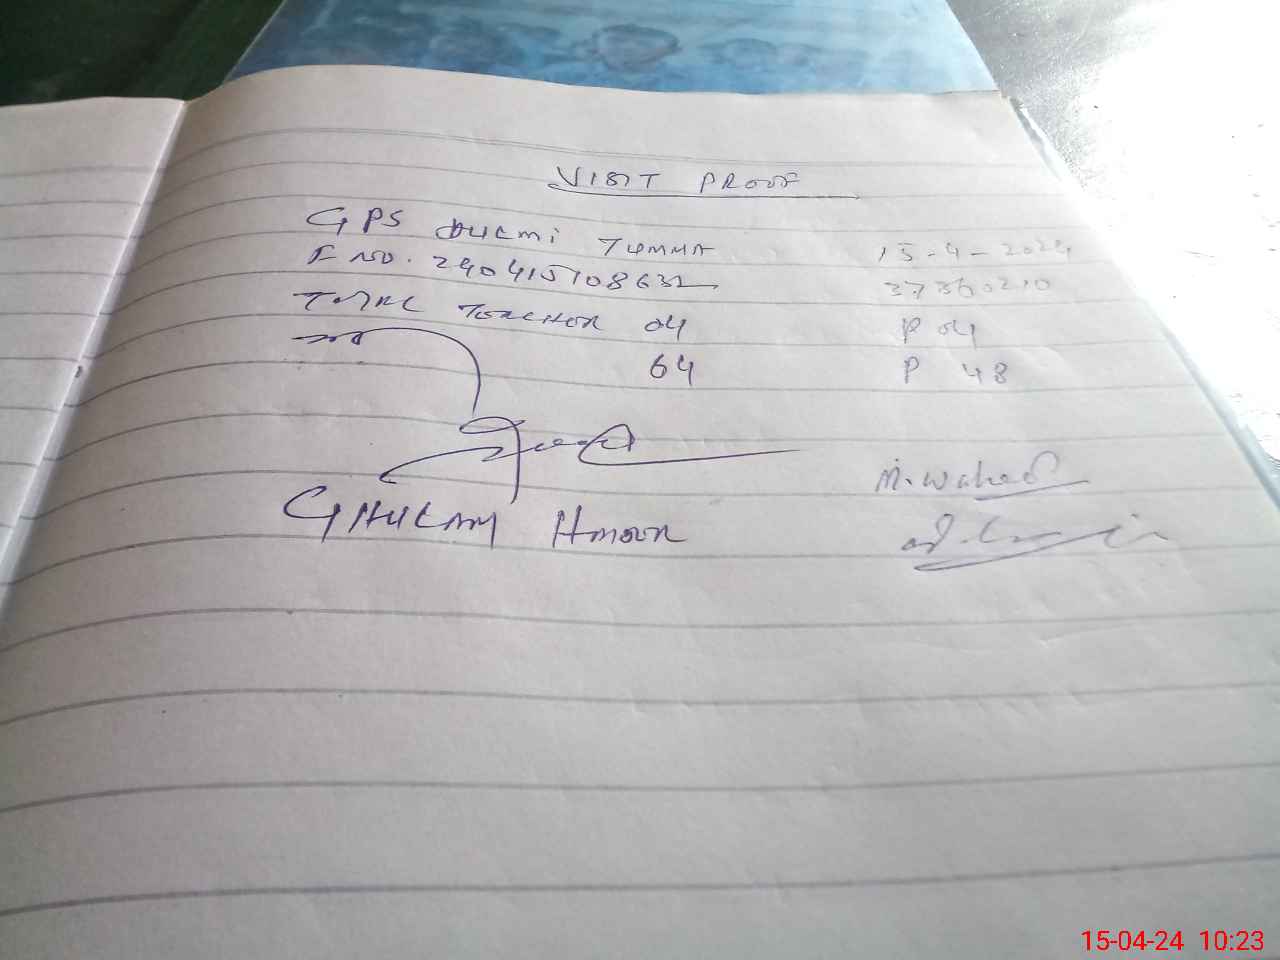 VISIT PROOF
GPS DHEMI TUMMA 15-4-2024
F NO. 290415108632 37360210
TOTAL TEACHER 04 P 04
64 P 48
M. Waheed
GHULAM
15-04-24 10:23